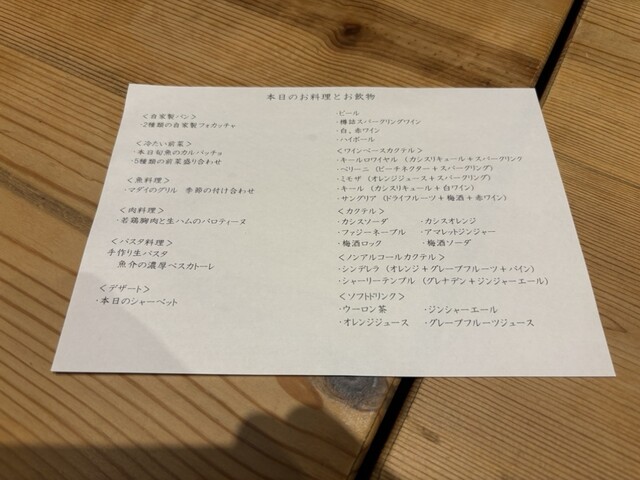 本日のお料理とお飲物
＜自家製パン＞
・2種類の自家製フォカッチャ
＜冷たい前菜＞
・本日旬魚のカルパッチョ
・5種類の前菜盛り合わせ
＜魚料理＞
・マダイのグリル　季節の付け合わせ
＜肉料理＞
・若鶏胸肉と生ハムのバロティーヌ
＜パスタ料理＞
手作り生パスタ
魚介の濃厚ペスカトーレ
＜デザート＞
・本日のシャーベット
・ビール
・樽詰スパークリングワイン
・白、赤ワイン
・ハイボール
＜ワインベースカクテル＞
・キールロワイヤル（カシスリキュール＋スパークリンク
・ベリーニ（ピーチネクター＋スパークリング）
・ミモザ（オレンジジュース＋スパークリング）
・キール（カシスリキュール＋白ワイン）
・サングリア（ドライフルーツ＋梅酒＋赤ワイン）
＜カクテル＞
・カシスソーダ　・カシスオレンジ
・ファジーネーブル　・アマレットジンジャー
・梅酒ロック　・梅酒ソーダ
＜ノンアルコールカクテル＞
・シンデレラ（オレンジ＋グレープフルーツ＋パイン）
・シャーリーテンプル（グレナデン＋ジンジャーエール）
＜ソフトドリンク＞
・ウーロン茶　・ジンジャーエール
・オレンジジュース　・グレープフルーツジュース